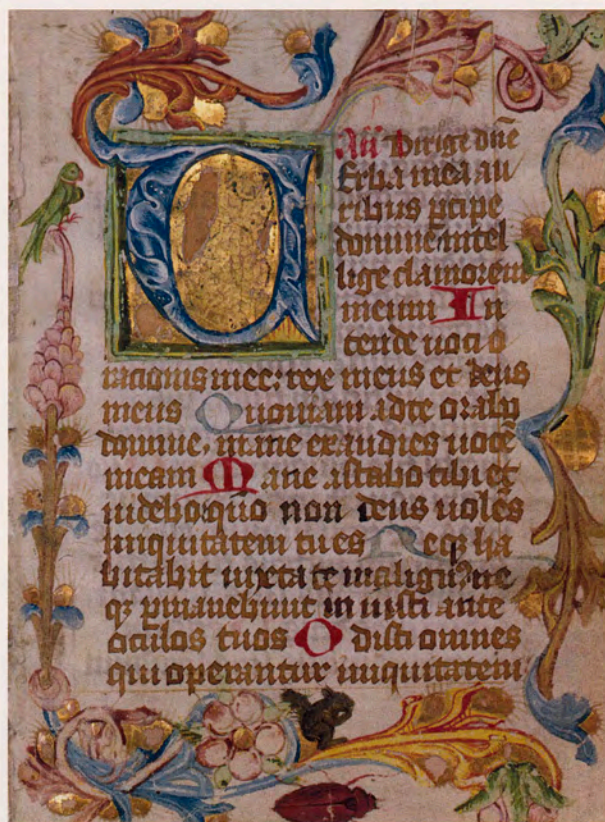 Añ Dirige dñe
VErba mea au
ribus ꝑcipe
domine intel
lige clamorem
meum In
tende uoci o
racionis mee: rex meus et deus
meus Quoniam ad te orabo
domine, mane exaudies uocē
meam Mane astabo tibi et
uidebo qūo non deus uolēs
iniquitatem tu es Neqꝫ ha
bitabit iuxta te malignꝰ ne
qꝫ ꝑmanebunt in iusti ante
oculos tuos Odisti omnes
qui operantur iniquitatem